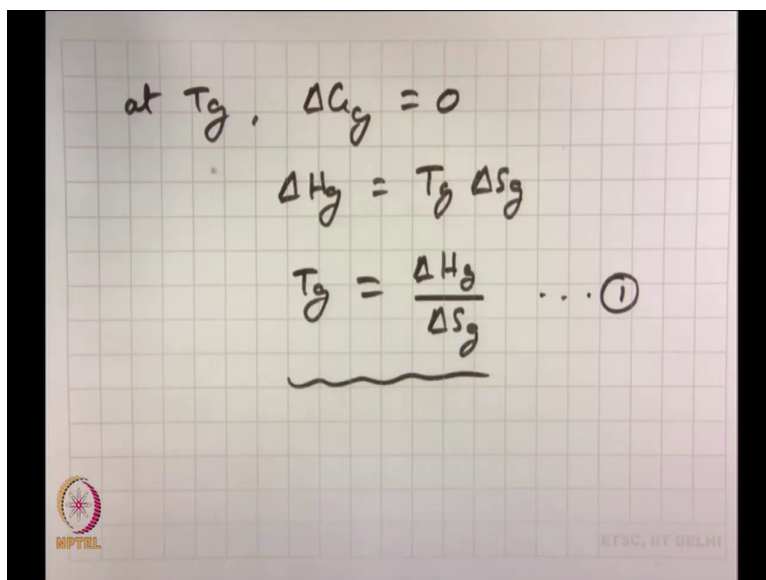 at Tg, ΔGg = 0
ΔHg = Tg ΔSg
Tg = ΔHg / ΔSg ... ①
NPTEL
ETSC, IIT DELHI